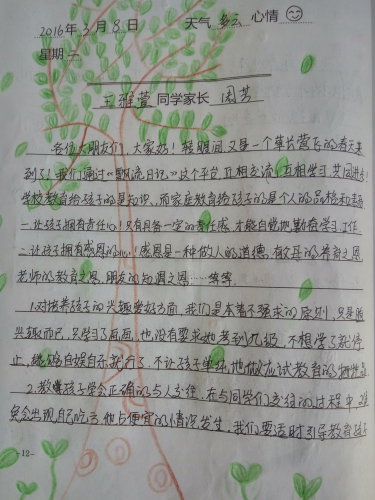 2016年3月8日 天气 多云 心情
星期二
王雅萱 同学家长 周芳
各位大朋友们，大家好！转眼间又是一个草长莺飞的春天来
到了！我们通过“飘流日记”这个平台，互相交流，互相学习，共同进步！
学校教育给孩子的是知识，而家庭教育给孩子的是个人的品格和
一.让孩子拥有责任心！只有具备一定的责任感，才能自觉地勤奋学习、工作
二.让孩子拥有感恩的心！感恩是一种做人的道德，有父母的养育之恩，
老师的教育之恩，朋友的知遇之恩……等等.
1.对培养孩子的兴趣爱好方面，我们是本着不强求的原则，只是
兴趣而已，只学习了画画，也没有要求她考到几级，不想学了就停
止，能够自娱自乐就行了，不让孩子单纯地做应试教育的牺牲品
2.教孩子学会正确的与人交往，在与同学们交往的过程中难
免会出现自己吃亏他占便宜的情况发生，我们要适时引导教育孩子
-12-